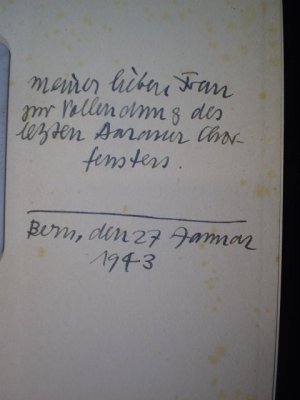 meiner lieben Frau
zur Vollendung des
letzten Aarauer Chor-
fensters.
Bern, den 27 Januar
1943